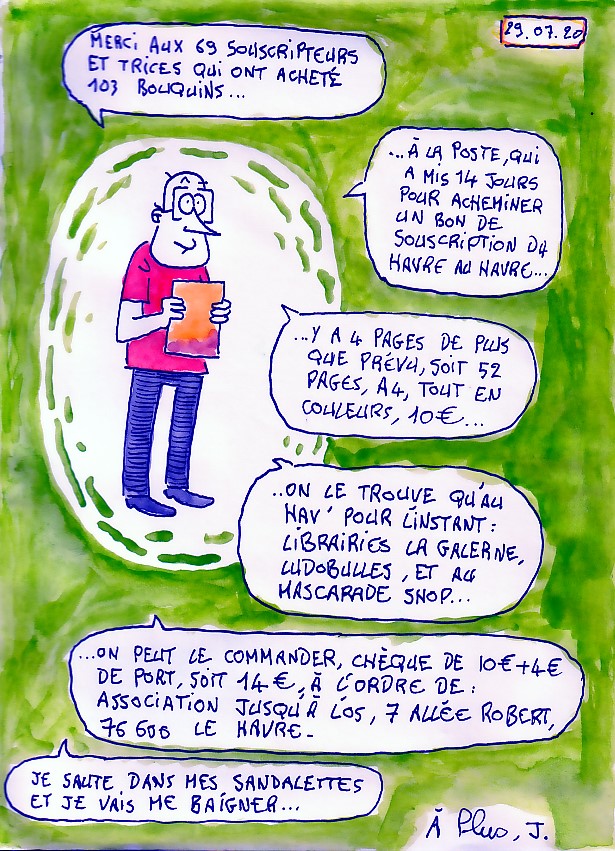 29.07.20
MERCI AUX 69 SOUSCRIPTEURS
ET TRICES QUI ONT ACHETÉ
103 BOUQUINS...
...À LA POSTE, QUI
A MIS 14 JOURS
POUR ACHEMINER
UN BON DE
SOUSCRIPTION DU
HAVRE AU HAVRE...
...Y A 4 PAGES DE PLUS
QUE PRÉVU, SOIT 52
PAGES, A4, TOUT EN
COULEURS, 10€...
..ON LE TROUVE QU'AU
HAV' POUR L'INSTANT :
LIBRAIRIES LA GALERNE,
LUDOBULLES, ET AU
MASCARADE SHOP...
...ON PEUT LE COMMANDER, CHÈQUE DE 10€+4€
DE PORT, SOIT 14€, À L'ORDRE DE :
ASSOCIATION JUSQU'À L'OS, 7 ALLÉE ROBERT,
76600 LE HAVRE-
JE SAUTE DANS MES SANDALETTES
ET JE VAIS ME BAIGNER...
À Plus, J.